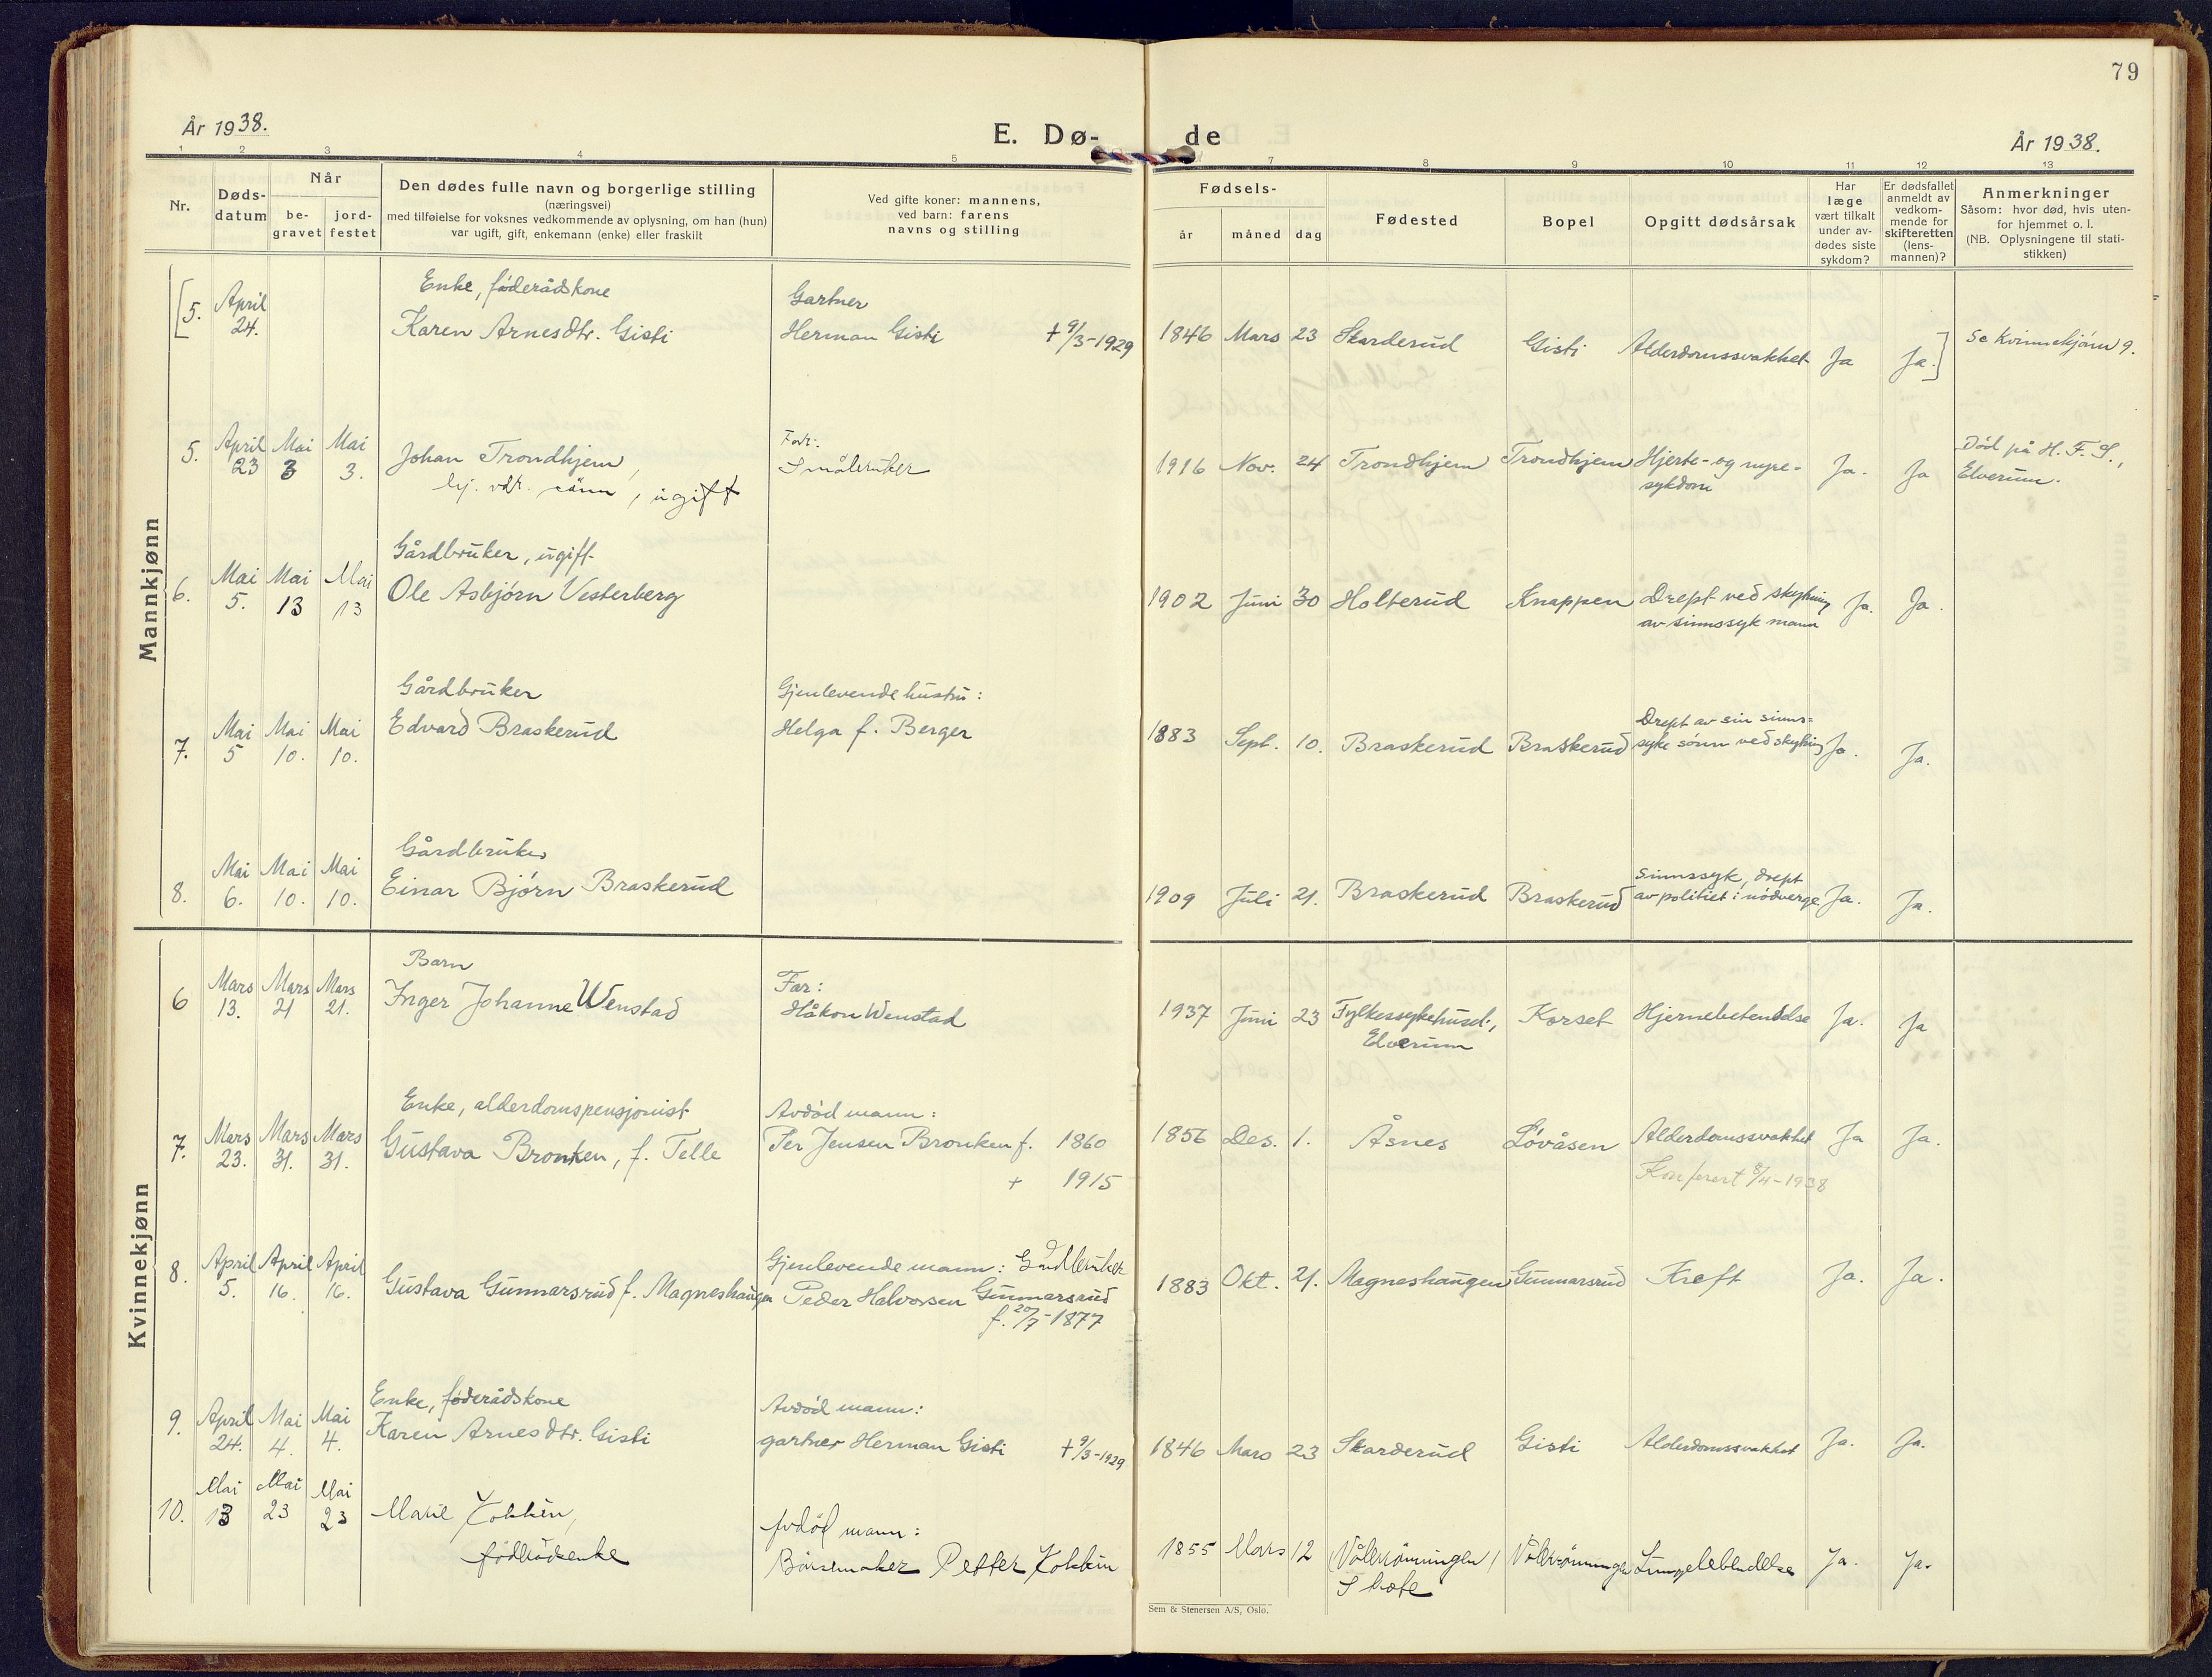 79
År 1938.
E. Dø-
de
År 1938.
1 2 3 4 5 7 8 9 10 11 12 13
Nr.
Døds-
datum
Når
be-
gravet
jord-
festet
Den dødes fulle navn og borgerlige stilling
(næringsvei)
med tilføielse for voksnes vedkommende av oplysning, om han (hun)
var ugift, gift, enkemann (enke) eller fraskilt
Ved gifte koner: mannens,
ved barn: farens
navns og stilling
Fødsels-
år måned dag
Fødested
Bopel
Opgitt dødsårsak
Har
læge
vært tilkalt
under av-
dødes siste
sykdom?
Er dødsfallet
anmeldt av
vedkom-
mende for
skifteretten
(lens-
mannen)?
Anmerkninger
Såsom: hvor død, hvis uten-
for hjemmet o. l.
(NB. Oplysningene til stati-
stikken)
Mannkjønn
Enke, føderådskone Gartner
[5. April 24. Karen Arnesdtr. Gisti Herman Gisti + 9/3-1929 1846 Mars 23 Skarderud Gisti Alderdomssvakhet Ja Ja.] Se Kvinnekjønn 9.
5. April 23 Mai 3 Mai 3. Johan Trondhjem, Far: Småbruker 1916 Nov. 24 Trondhjem Trondhjem Hjerte- og nyre- Ja. Ja Død på H. F. S.,
sønn, ugift sykdom Elverum.
Gårdbruker, ugift
6. Mai 5. Mai 13 Mai 13 Ole Asbjørn Vesterberg 1902 Juni 30 Holterud Knappen Drept ved skytning Ja. Ja.
av sinnssyk mann
Gårdbruker Gjenlevende hustru: Drept av sin sinns-
7. Mai 5 Mai 10. Mai 10. Edvard Braskerud Helga f. Berger 1883 Sept. 10. Braskerud Braskerud syke sønn ved skytning Ja. Ja.
Gårdbruker Sinnssyk, drept
8. Mai 6. Mai 10. Mai 10. Einar Bjørn Braskerud 1909 Juli 21. Braskerud Braskerud av politiet i nødverge Ja. Ja.
Kvinnekjønn
Barn Far:
6 Mars 13. Mars 21 Mars 21. Inger Johanne Wenstad Håkon Wenstad 1937 Juni 23 Fylkessykehuset, Korset Hjernebetendelse Ja. Ja
Elverum
Enke, alderdomspensjonist Avdød mann:
7. Mars 23. Mars 31. Mars 31. Gustava Bronken, f. Telle Per Jensen Bronken f. 1860 1856 Des. 1. Åsnes Løvåsen Alderdomssvakhet Ja Ja.
+ 1915 Konferert 8/4-1938
Gjenlevende mann: Gårdbruker
8. April 5. April 16. April 16. Gustava Gunnarsrud f. Magneshaugen Peder Halvorsen Gunnarsrud 1883 Okt. 21. Magneshaugen Gunnarsrud Kreft Ja. Ja.
f. 20/7-1877
Enke, føderådskone Avdød mann:
9. April 24. Mai 4. Mai 4. Karen Arnesdtr. Gisti gartner Herman Gisti + 9/3-1929 1846 Mars 23 Skarderud Gisti Alderdomssvakhet Ja. Ja.
10. Mai 13 Mai 23 Mai 23 Marie Kokkin, Avdød mann: 1855 Mars 12 Lungebetendelse Ja. Ja.
Børsemaker Petter Kokkin
Sem & Stenersen A/S, Oslo.